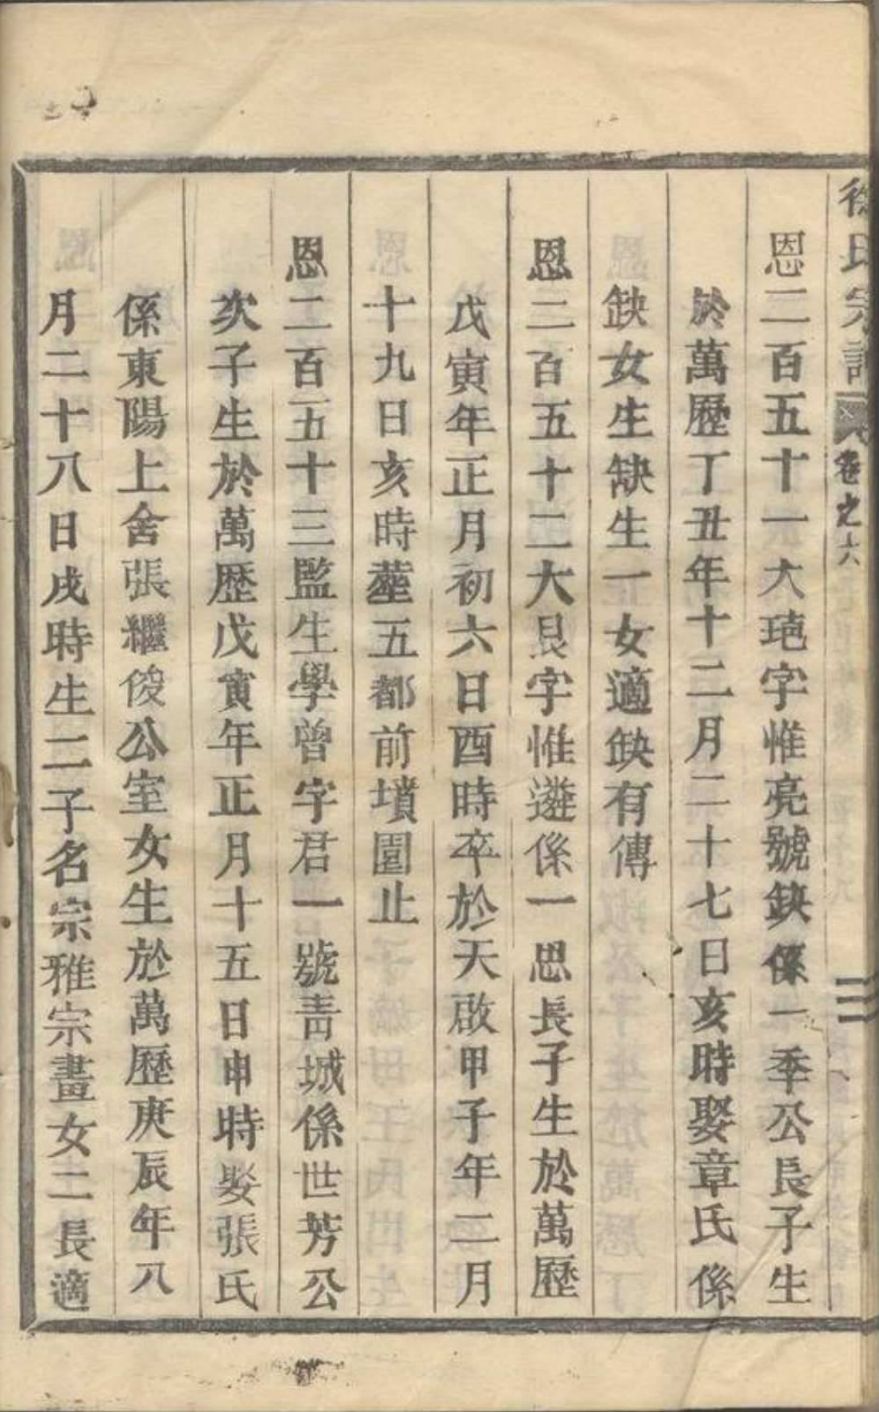 徐氏宗譜 卷之六
恩二百五十一大𤧚字惟亮號缺係一季公長子生
於萬歷丁丑年十二月二十七日亥時娶章氏係
缺女生缺生一女適缺有傳
恩二百五十二大艮字惟遴係一思長子生於萬歷
戊寅年正月初六日酉時卒於天啟甲子年二月
十九日亥時塟五都前墳園止
恩二百五十三監生學曾字君一號靑城係世芳公
次子生於萬歷戊寅年正月十五日申時娶張氏
係東陽上舍張繼俊公室女生於萬歷庚辰年八
月二十八日戌時生二子名宗雅宗畫女二長適